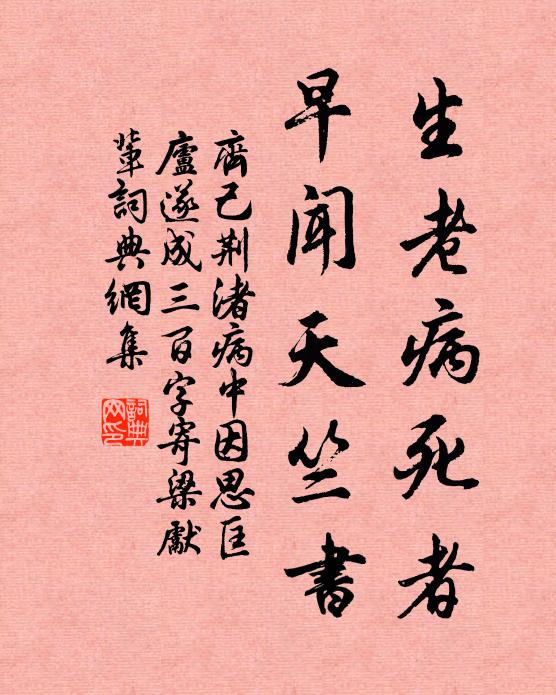 生老病死者
早聞天竺書
齊己荆渚病中因思匡
廬遂成三百字寄梁獻
輩詞典網集
詞典网印